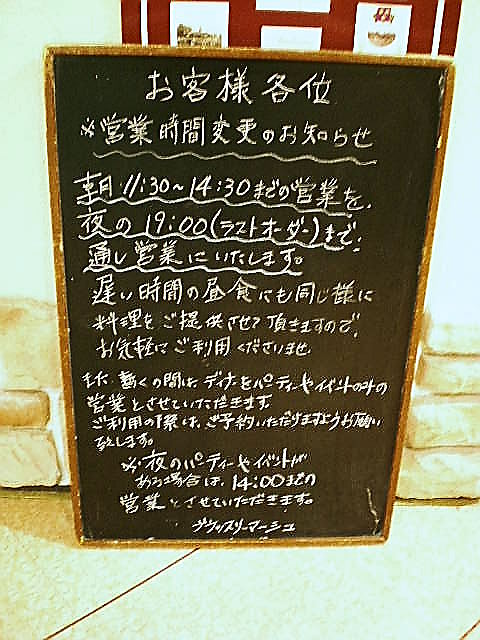 お客様各位
※営業時間変更のお知らせ
朝11:30~14:30までの営業を、
夜の19:00(ラストオーダー)まで、
通し営業にいたします。
遅い時間の昼食にも同じ様に
料理をご提供させて頂きますので、
お気軽にご利用くださいませ
また 暫くの間は ディナーをパーティーやイベントのみの
営業とさせていただきます
ご利用の際は、ご予約いただけますようお願い
致します。
※夜のパーティーやイベントが
ある場合は、14:00までの
営業とさせていただきます。